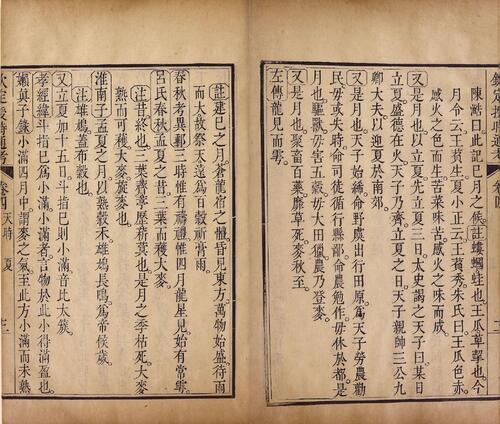 陳澔曰此記巳月之候註螻蟈蛙也王瓜草挈也今
月令云王萯生夏小正云王萯秀朱氏曰王瓜色赤
感火之色而生苦菜味苦感火之味而成
又是月也以立夏先立夏三日太史謁之天子曰某日
立夏盛德在火天子乃齊立夏之日天子親帥三公九
卿大夫以迎夏於南郊
又是月也天子始絺命野虞出行田原爲天子勞農勸
民毋或失時命司徒循行縣鄙命農勉作毋休於都是
月也驅獸毋害五穀毋大田獵農乃登麥
又是月也聚畜百藥靡草死麥秋至
左傳龍見而雩
註建巳之月蒼龍宿之體昏見東方萬物始盛待雨
而大故祭天遠爲百穀祈膏雨
春秋考異郵三時惟有禱禮惟四月龍星見始有常雩
呂氏春秋孟夏之昔殺三葉而穫大麥
註昔終也三葉薺葶歷菥蓂也是月之季枯死大麥
熟而可穫大麥旋麥也
淮南子孟夏之月以熟穀禾雄鳩長鳴爲帝候歲
注雄鳩蓋布穀也
又立夏加十五日斗指巳則小滿音比太簇
孝經緯斗指巳爲小滿小滿者言物於此小得滿盈也
嬾真子錄小滿四月中謂麥之氣至此方小滿而未熟
欽定授時通考 卷四 天時 夏 三